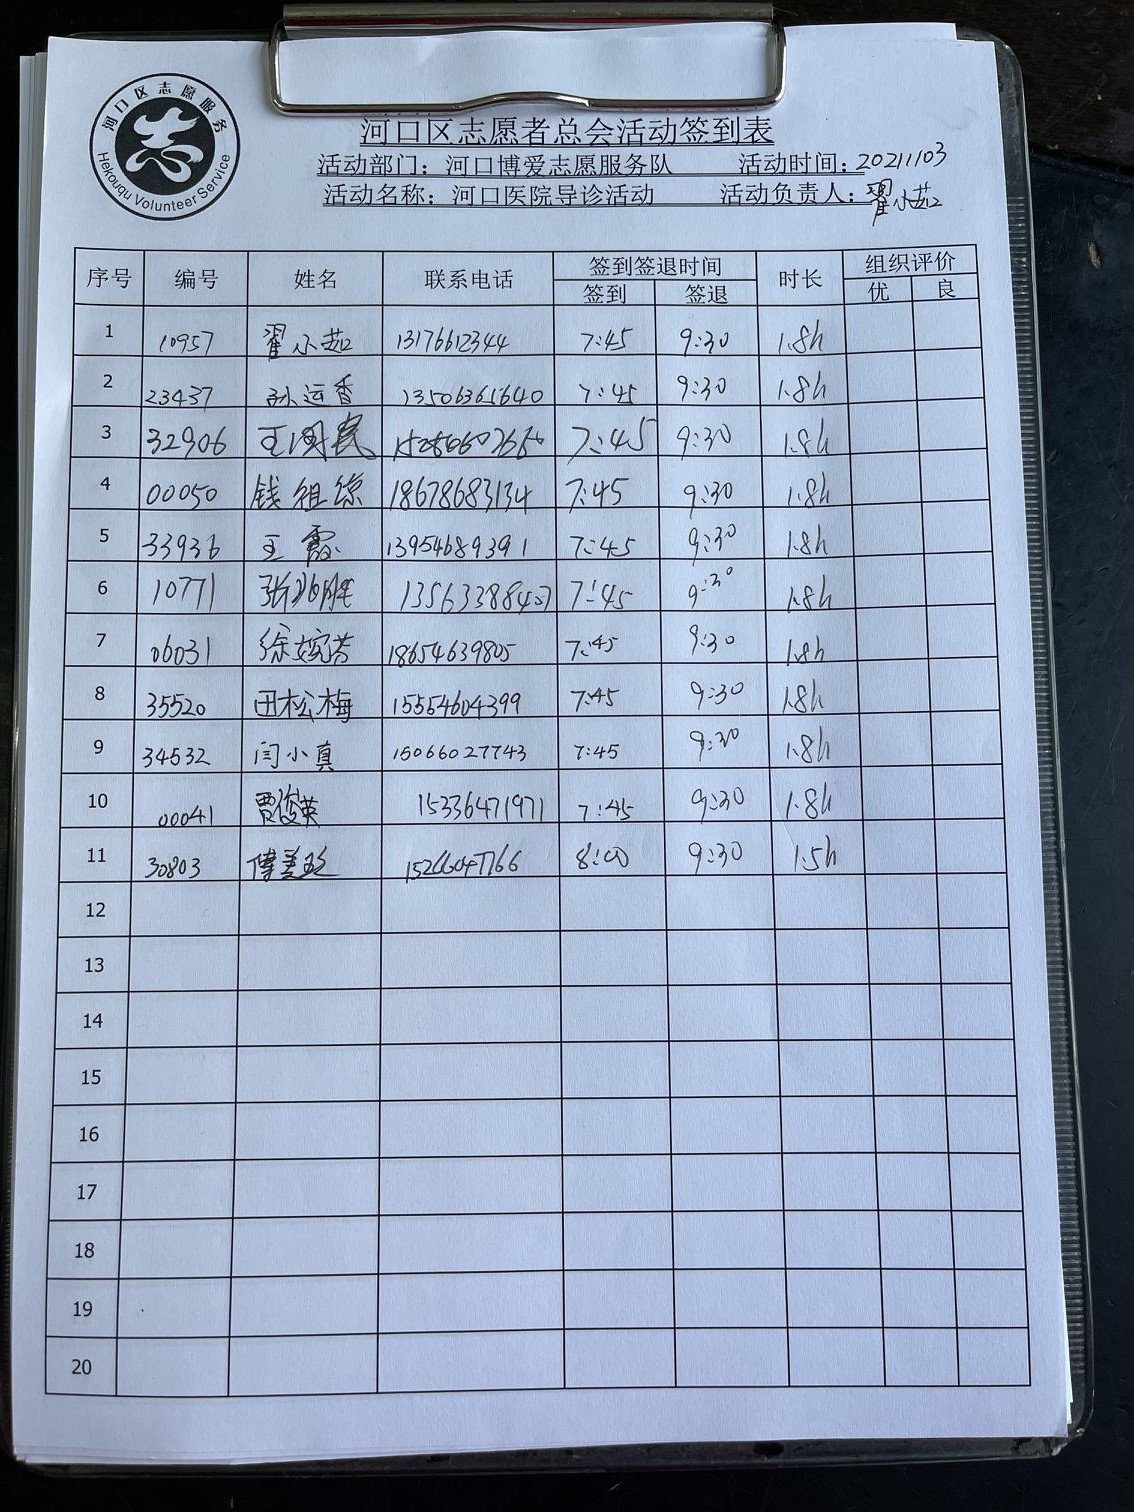 河口区志愿服务
Hekouqu Volunteer Service
河口区志愿者总会活动签到表
活动部门：河口博爱志愿服务队 活动时间：20211103
活动名称：河口医院导诊活动 活动负责人：翟小茹
序号 编号 姓名 联系电话 签到签退时间 时长 组织评价
签到 签退 优 良
1 10957 翟小茹 13176612344 7:45 9:30 1.8h
2 23437 孙运香 13506361640 7:45 9:30 1.8h
3 32906 7:45 9:30 1.8h
4 00050 钱祖琼 18678683134 7:45 9:30 1.8h
5 33936 王霞 13954689391 7:45 9:30 1.8h
6 10771 7:45 9:30 1.8h
7 06031 徐婉芳 18654639805 7:45 9:30 1.8h
8 35520 田松梅 15554604399 7:45 9:30 1.8h
9 34532 闫小真 15066027743 7:45 9:30 1.8h
10 00041 贾俊英 15336471971 7:45 9:30 1.8h
11 30803 傅美玲 15266047166 8:00 9:30 1.5h
12
13
14
15
16
17
18
19
20